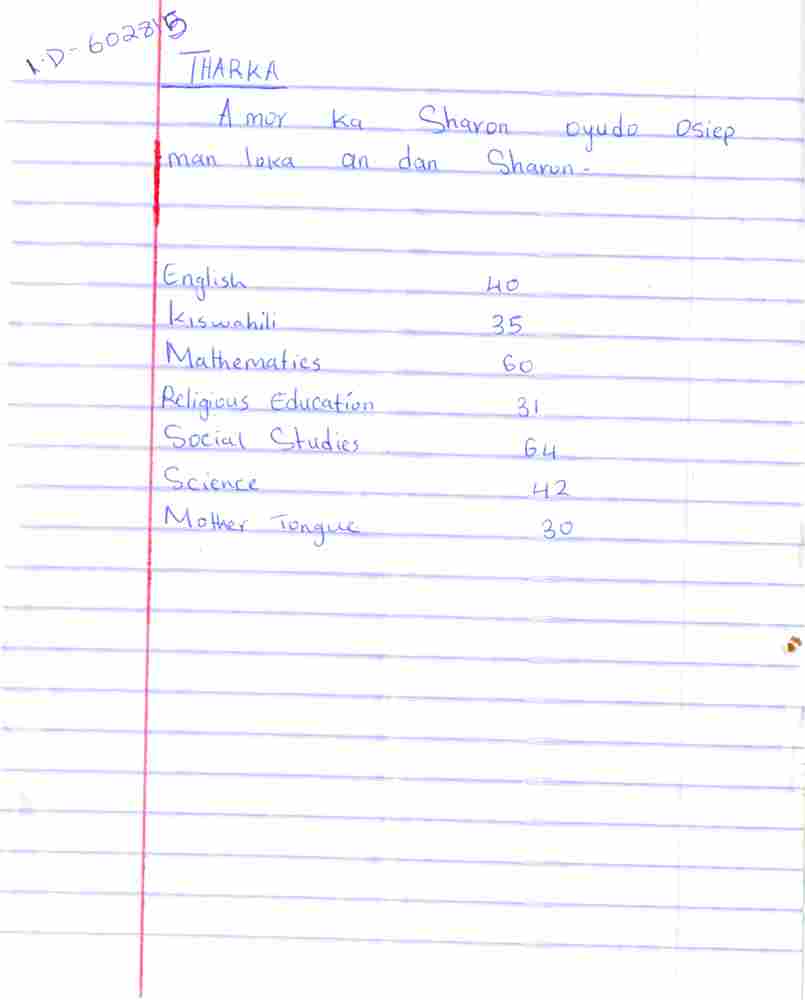 I.D-602815
THARKA
Amor ka Sharon oyudo Osiep
man loka an dan Sharon.
English 40
Kiswahili 35
Mathematics 60
Religious Education 31
Social Studies 64
Science 42
Mother Tongue 30